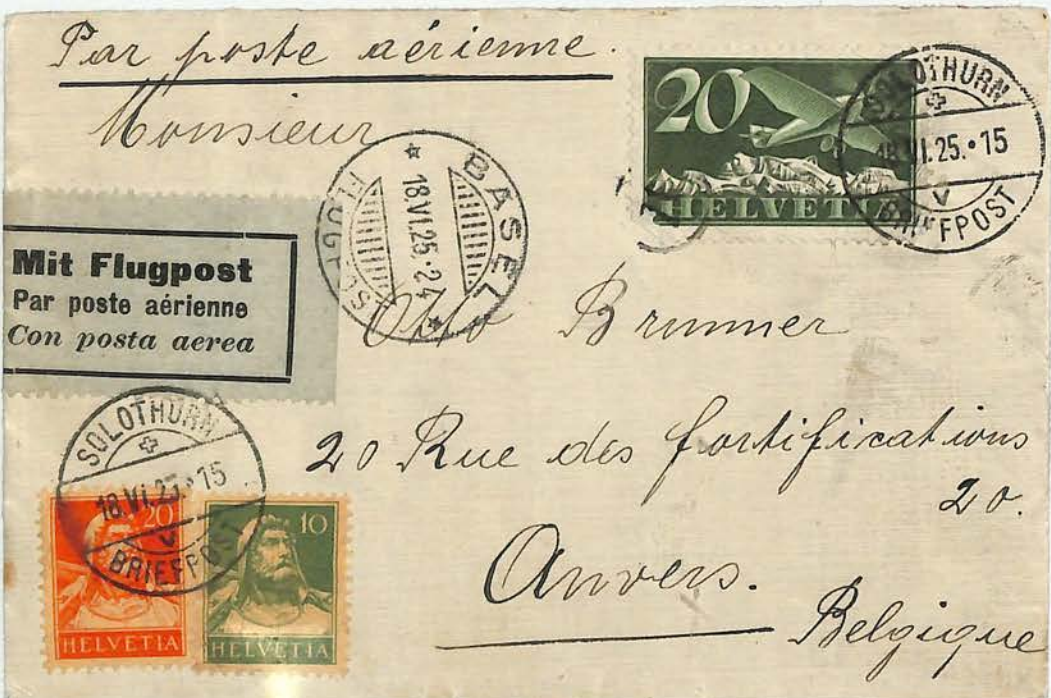 Par poste aérienne.
Monsieur
20
HELVETIA
SOLOTHURN
18.VI.25.•15
V
BRIEFPOST
BASEL
18.VI.25•24
Mit Flugpost
Par poste aérienne
Con posta aerea
Otto Brunner
20 Rue des fortifications
20.
Anvers.
Belgique
SOLOTHURN
18.VI.25•15
V
BRIEFPOST
20
HELVETIA
10
HELVETIA